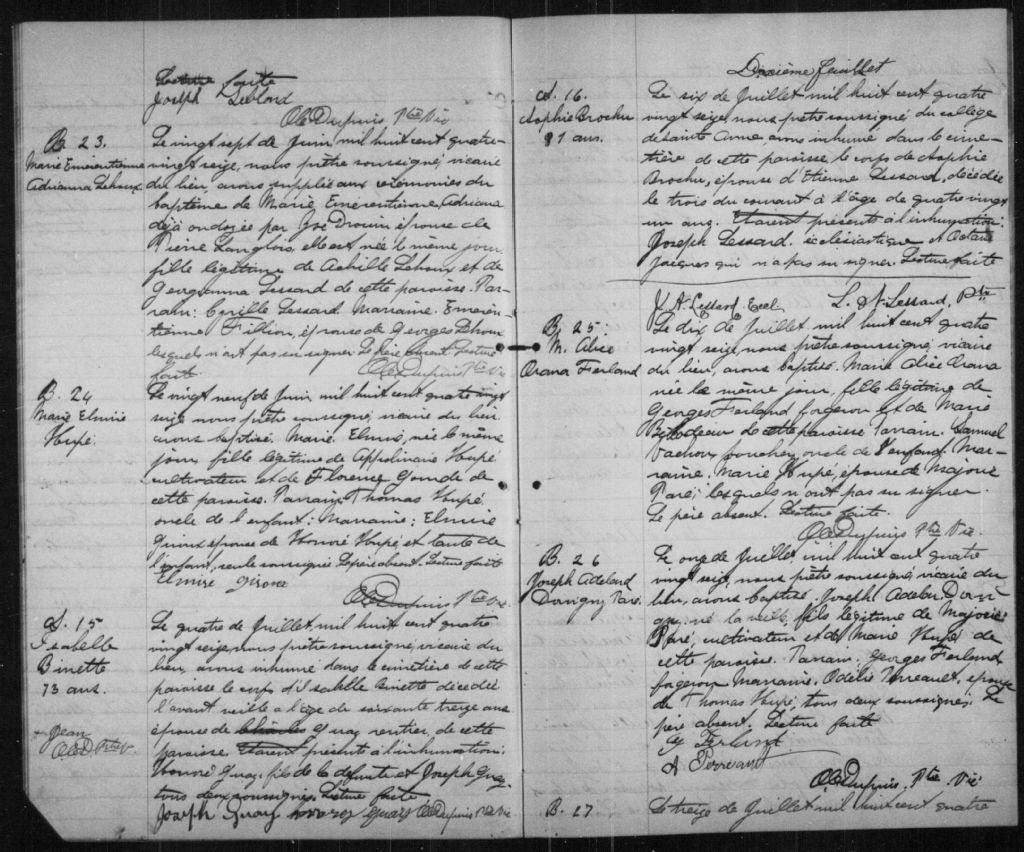 Lecture faite
Joseph Leblond
O E Dupuis Ptre Vic
B. 23.
Marie Emérentienne
Adrianna Lehoux
Le vingt sept de Juin, mil huit cent quatre-
vingt seize, nous prêtre soussigné, vicaire
du lieu, avons suppléé aux cérémonies du
baptême de Marie Emérentienne, Adriana
déjà ondoyée par Joé Drouin épouse de
Pierre Langlois, elle est née le même jour,
fille légitime de Achille Lehoux et de
Georgianna Lessard de cette paroisse. Par-
rain: Cyrille Lessard Marraine. Eméren-
tienne Fillion, épouse de Georges Lehoux
lesquels n'ont pas su signer. Le père absent. Lecture
faite.
O E Dupuis Ptre Vic
B. 24
Marie Elmire
Hupé.
Le vingt neuf de Juin, mil huit cent quatre vingt
seize nous prêtre soussigné, vicaire du lieu,
avons baptisé. Marie. Elmire, née le même
jour, fille légitime de Appolinaire Hupé
cultivateur et de Florence de
cette paroisse. Parrain, Thomas Hupé
oncle de l'enfant: Marraine: Elmire
Giroux épouse de Honoré Hupé et tante de
l'enfant, seule soussignée. Le père absent. Lecture faite
Elmire
O E Dupuis Ptre Vic.
S. 15
Isabelle
Binette
73 ans.
Jean
O E D Ptre V
Le quatre de Juillet mil huit cent quatre
vingt seize, nous prêtre soussigné, vicaire du
lieu, avons inhumé dans le cimetière de cette
paroisse le corps d'Isabelle Binette décédée
l'avant veille à l'âge de soixante treize ans
épouse de Charles Guay rentier, de cette
paroisse. Etaient présents à l'inhumation:
Honoré Guay, fils de la défunte et Joseph Guay
tous deux soussignés. Lecture faite
Joseph Guay honoré guay O E Dupuis Ptre Vic
Dixième feuillet
S. 16.
Sophie Brochu
81 ans.
Le six de Juillet mil huit cent quatre
vingt seize, nous prêtre soussigné du collège
de Sainte Anne, avons inhumé dans le cime-
tière de cette paroisse, le corps de Sophie
Brochu, épouse d'Etienne Lessard, décédée
le trois du courant à l'âge de quatre vingt
un ans. Etaient présents à l'inhumation:
Joseph Lessard. écclésiastique et Octave
Jacques qui n'a pas su signer. Lecture faite
J. A. Lessard, Eccl. L. N. Lessard, Ptre
B. 25:
M. Alice
Orana Ferland
Le dix de Juillet mil huit cent quatre
vingt seize, nous prêtre soussigné, vicaire
du lieu, avons baptisé. Marie Alice Orana
née le même jour, fille légitime de
Georges Ferland forgeron et de Marie
Bilodeau de cette paroisse Parrain: Samuel
Vachon, oncle de l'enfant. Mar-
raine: Marie Hupé, épouse de Majorie
Paré: lesquels n'ont pas su signer.
Le père absent. Lecture faite.
O E Dupuis Ptre Vic.
B. 26
Joseph Adelard
Dorigny Paré.
Le onze de Juillet, mil huit cent quatre
vingt seize, nous prêtre soussigné, vicaire du
lieu, avons baptisé. Joseph Adelar. Dori-
gny, né la veille, fils légitime de Majorie
Paré, cultivateur et de Marie Hupé de
cette paroisse. Parrain: Georges Ferland
forgeron Marraine. Odélie Perreault, épouse
de Thomas Hupé, tous deux soussignés; Le
père absent. Lecture faite
G Ferland
O Perreault
O E Dupuis, Ptre Vic
B. 27
Le treize de Juillet mil huit cent quatre